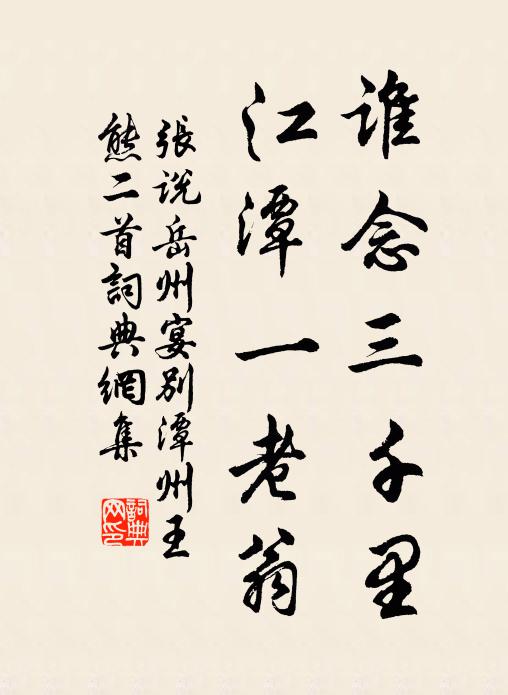 誰念三千里
江潭一老翁
張説岳州宴別潭州王
熊二首詞典網集
詞典
网印